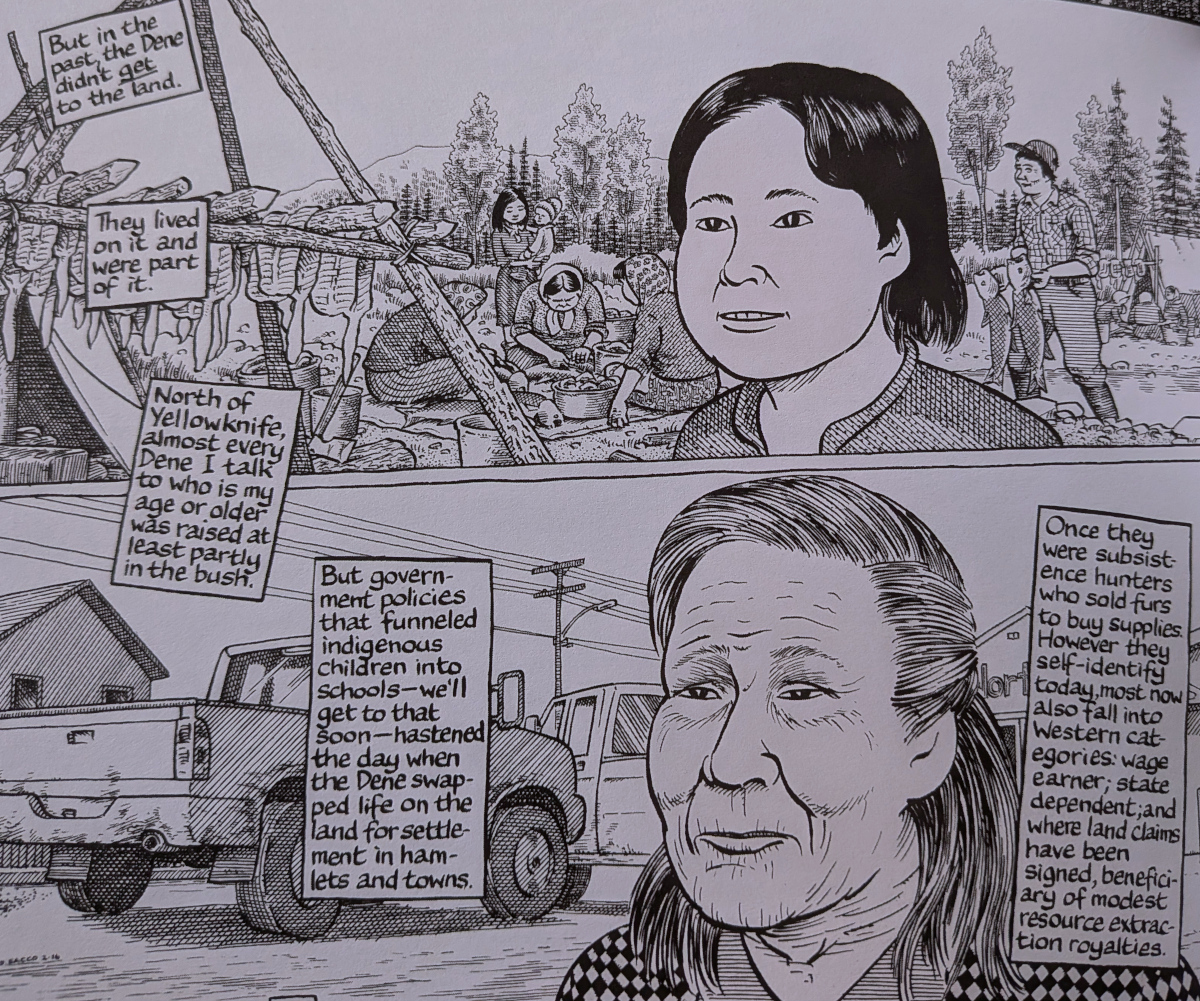 But in the
past, the Dene
didn't get
to the land.
They lived
on it and
were part
of it.
North of
Yellowknife,
almost every
Dene I talk
to who is my
age or older
was raised at
least partly
in the bush.
But govern-
ment policies
that funneled
indigenous
children into
schools—we'll
get to that
soon—hastened
the day when
the Dene swap-
ped life on the
land for settle-
ment in ham-
lets and towns.
Once they
were subsist-
ence hunters
who sold furs
to buy supplies.
However they
self-identify
today, most now
also fall into
Western cat-
egories: wage
earner; state
dependent; and
where land claims
have been
signed, benefici-
ary of modest
resource extrac-
tion royalties.
SACCO 2.16